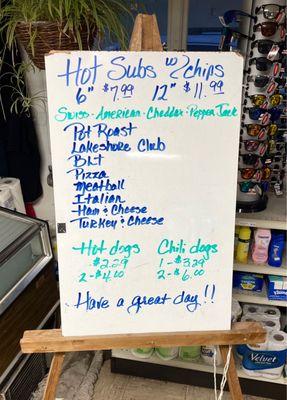 Hot Subs w/ chips
6" $7.99 12" $11.99
Swiss - American - Cheddar - Pepper Jack
Pot Roast
Lakeshore Club
Blt
Pizza
Meatball
Italian
Ham & Cheese
Turkey & Cheese
Hot dogs Chili dogs
1-$2.29 1-$3.29
2-$4.00 2-$6.00
Have a great day!!
Velvet